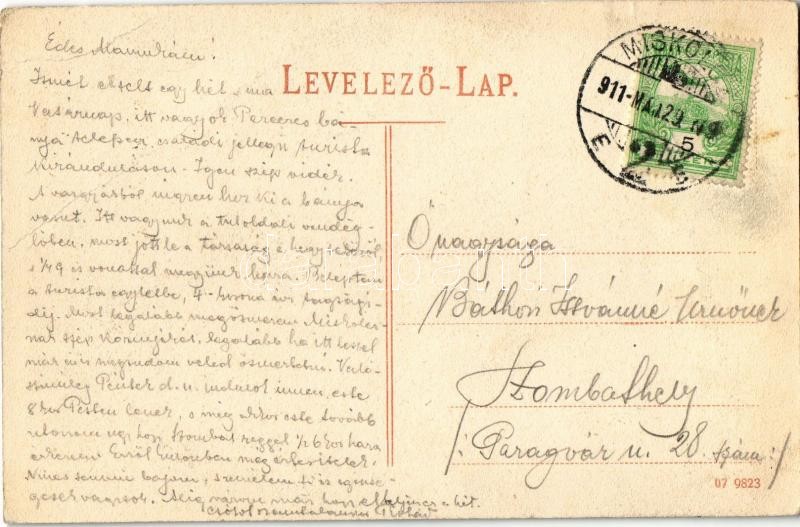 Édes Mamukám!
Ismét eltelt egy hét s ma
Vasárnap, itt vagyok Pereces bá-
nya telepen, családi jellegű turista
kiránduláson. Igen szép vidék.
A vasgyárból ingyen hoz ki a bánya
vonat. Itt vagyunk a túloldali vendég-
lőben, most jöttle a társaság a hegytetőről,
s 1/4 9 és vonattal megyünk haza. Beléptem
a turista egyletbe, 4 korona évi tagsági-
díj. Most legalább megösmerem Miskolc-
nak szép környékét, legalább ha itt leszel
már én is meg tudom veled ösmertetni. Való-
színüleg Péntek d. u. indulok innen, este
8 kor Pesten leszek, s még akkor este tovább
utazom úgy hogy Szombat reggel 1/2 6 kor haza
érkezem. Erről közben még értesítelek.
Nincs semmi bajom, remélem ti is egész-
ségesek vagytok. Alig várom már hogy elteljen ez a hét.
Csókol
LEVELEZŐ-LAP.
MISKOLC
911-MÁJ 29
5
Őnagysága
Báthori Istvánné Urnőnek
Szombathely
/: Paragvár u. 28 szám :/
07 9823